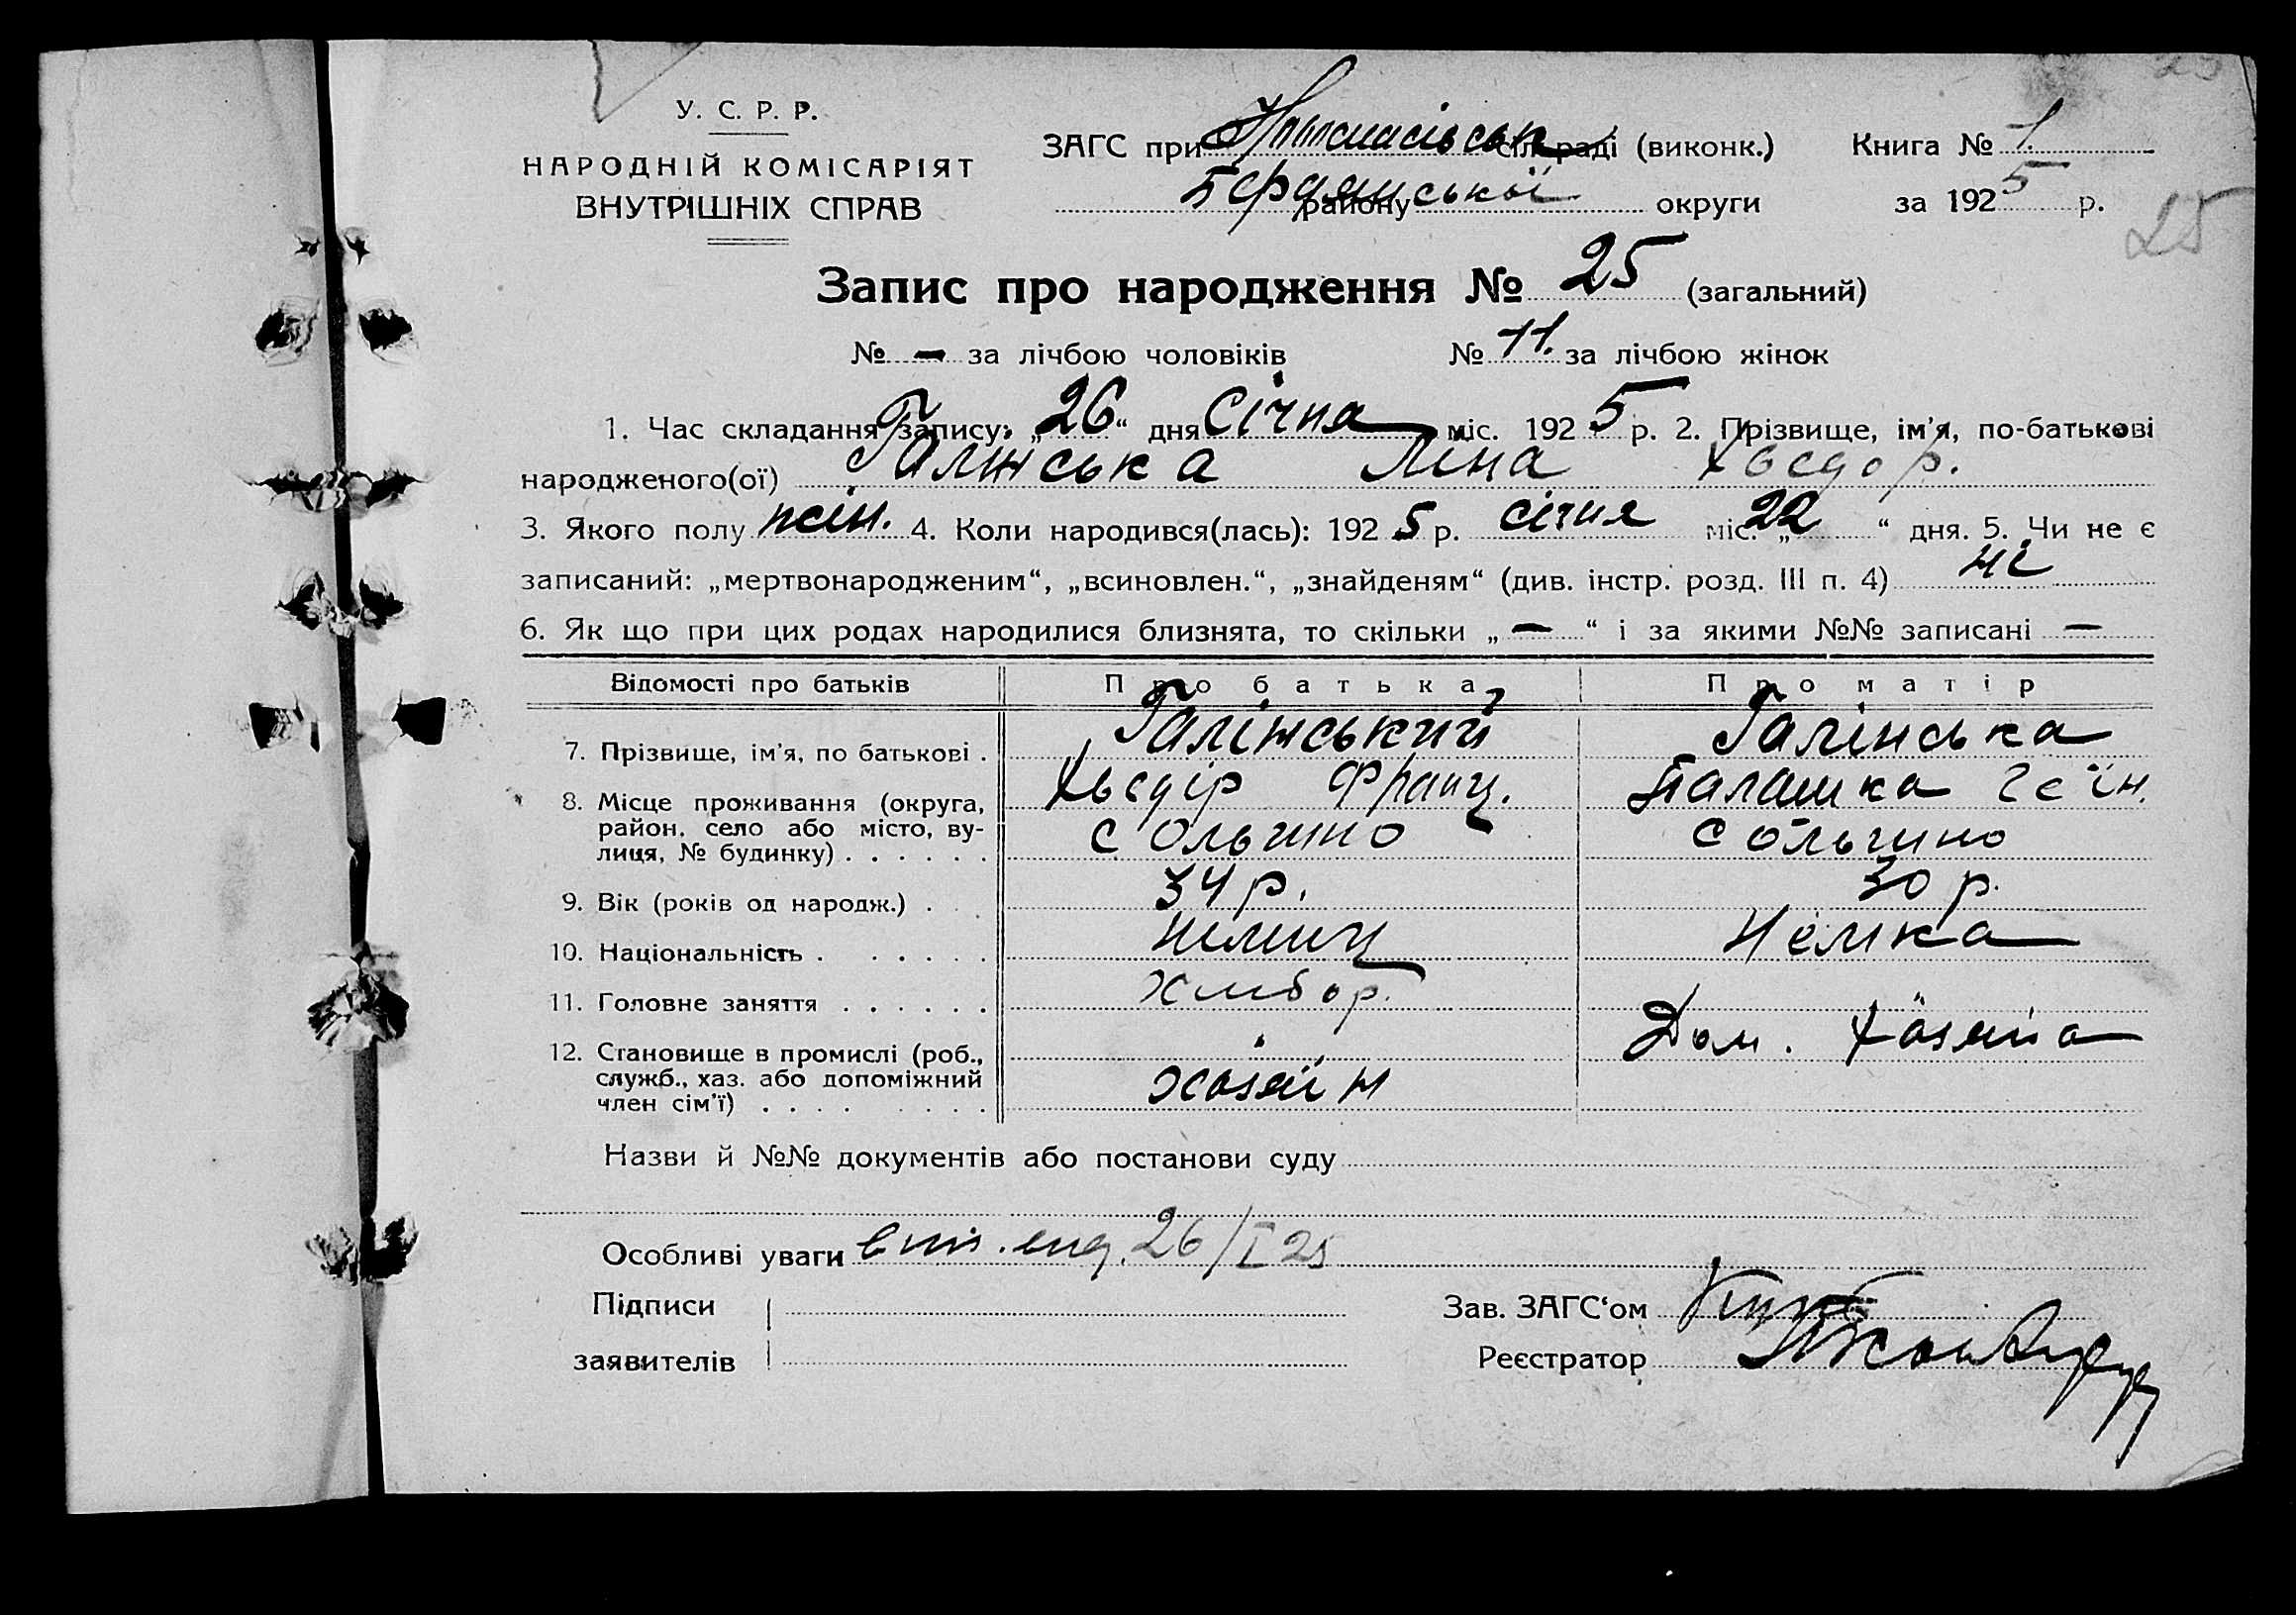 25
У. С. Р. Р.
НАРОДНІЙ КОМІСАРІЯТ
ВНУТРІШНІХ СПРАВ
ЗАГС при сільраді (виконк.) Книга № 1.
Бердянської району округи за 1925 р.
25
Запис про народження № 25 (загальний)
№ — за лічбою чоловіків № 11. за лічбою жінок
1. Час складання запису: „26“ дня Січня міс. 1925 р. 2. Прізвище, ім'я, по-батькові
народженого(ої) Галінська Ліна Хведор.
3. Якого полу жін. 4. Коли народився(лась): 1925 р. січня міс. „22“ дня. 5. Чи не є
записаний: „мертвонародженим“, „всиновлен.“, „знайденям“ (див. інстр. розд. III п. 4) ні
6. Як що при цих родах народилися близнята, то скільки „—“ і за якими №№ записані —
Відомості про батьків Про батька Про матір
7. Прізвище, ім'я, по батькові . Галінський Галінська
Хведір Франц. Палашка
8. Місце проживання (округа, район, село або місто, вулиця, № будинку) . . . . . . с Ольгино с Ольгино
9. Вік (років од народж.) . 34 р. 30 р.
10. Національність . . . . . . німиц Немка
11. Головне заняття . . . . . . Хлибор.
Дом. Хазяйа
12. Становище в промислі (роб., служб., хаз. або допоміжний член сім'ї) . . . . . . . . Хазяїн
Назви й №№ документів або постанови суду
Особливі уваги вип. вид. 26/I 25
Підписи
заявителів
Зав. ЗАГС‘ом
Реєстратор